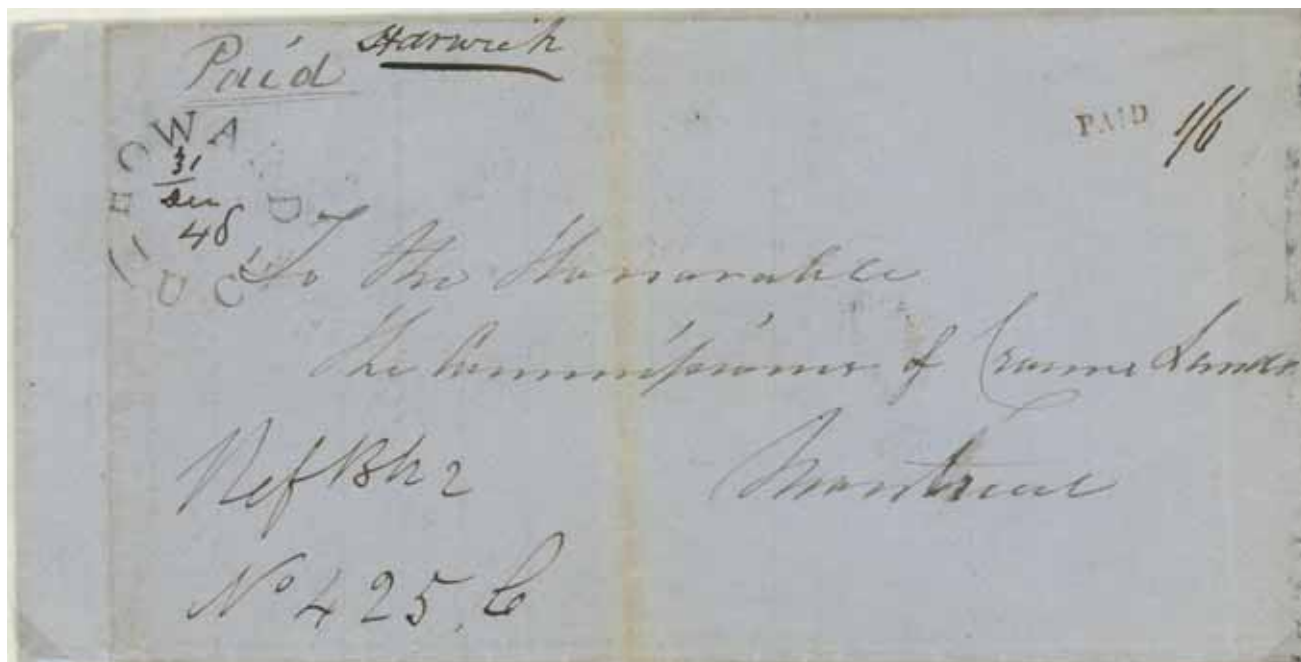 Paid Harwich
PAID 1/6
HOWARD U.C.
31
Dec
48
To the Honorable
The Commissioner of Crowne Lands
Montreal
Ref Bk 2
No 425, C